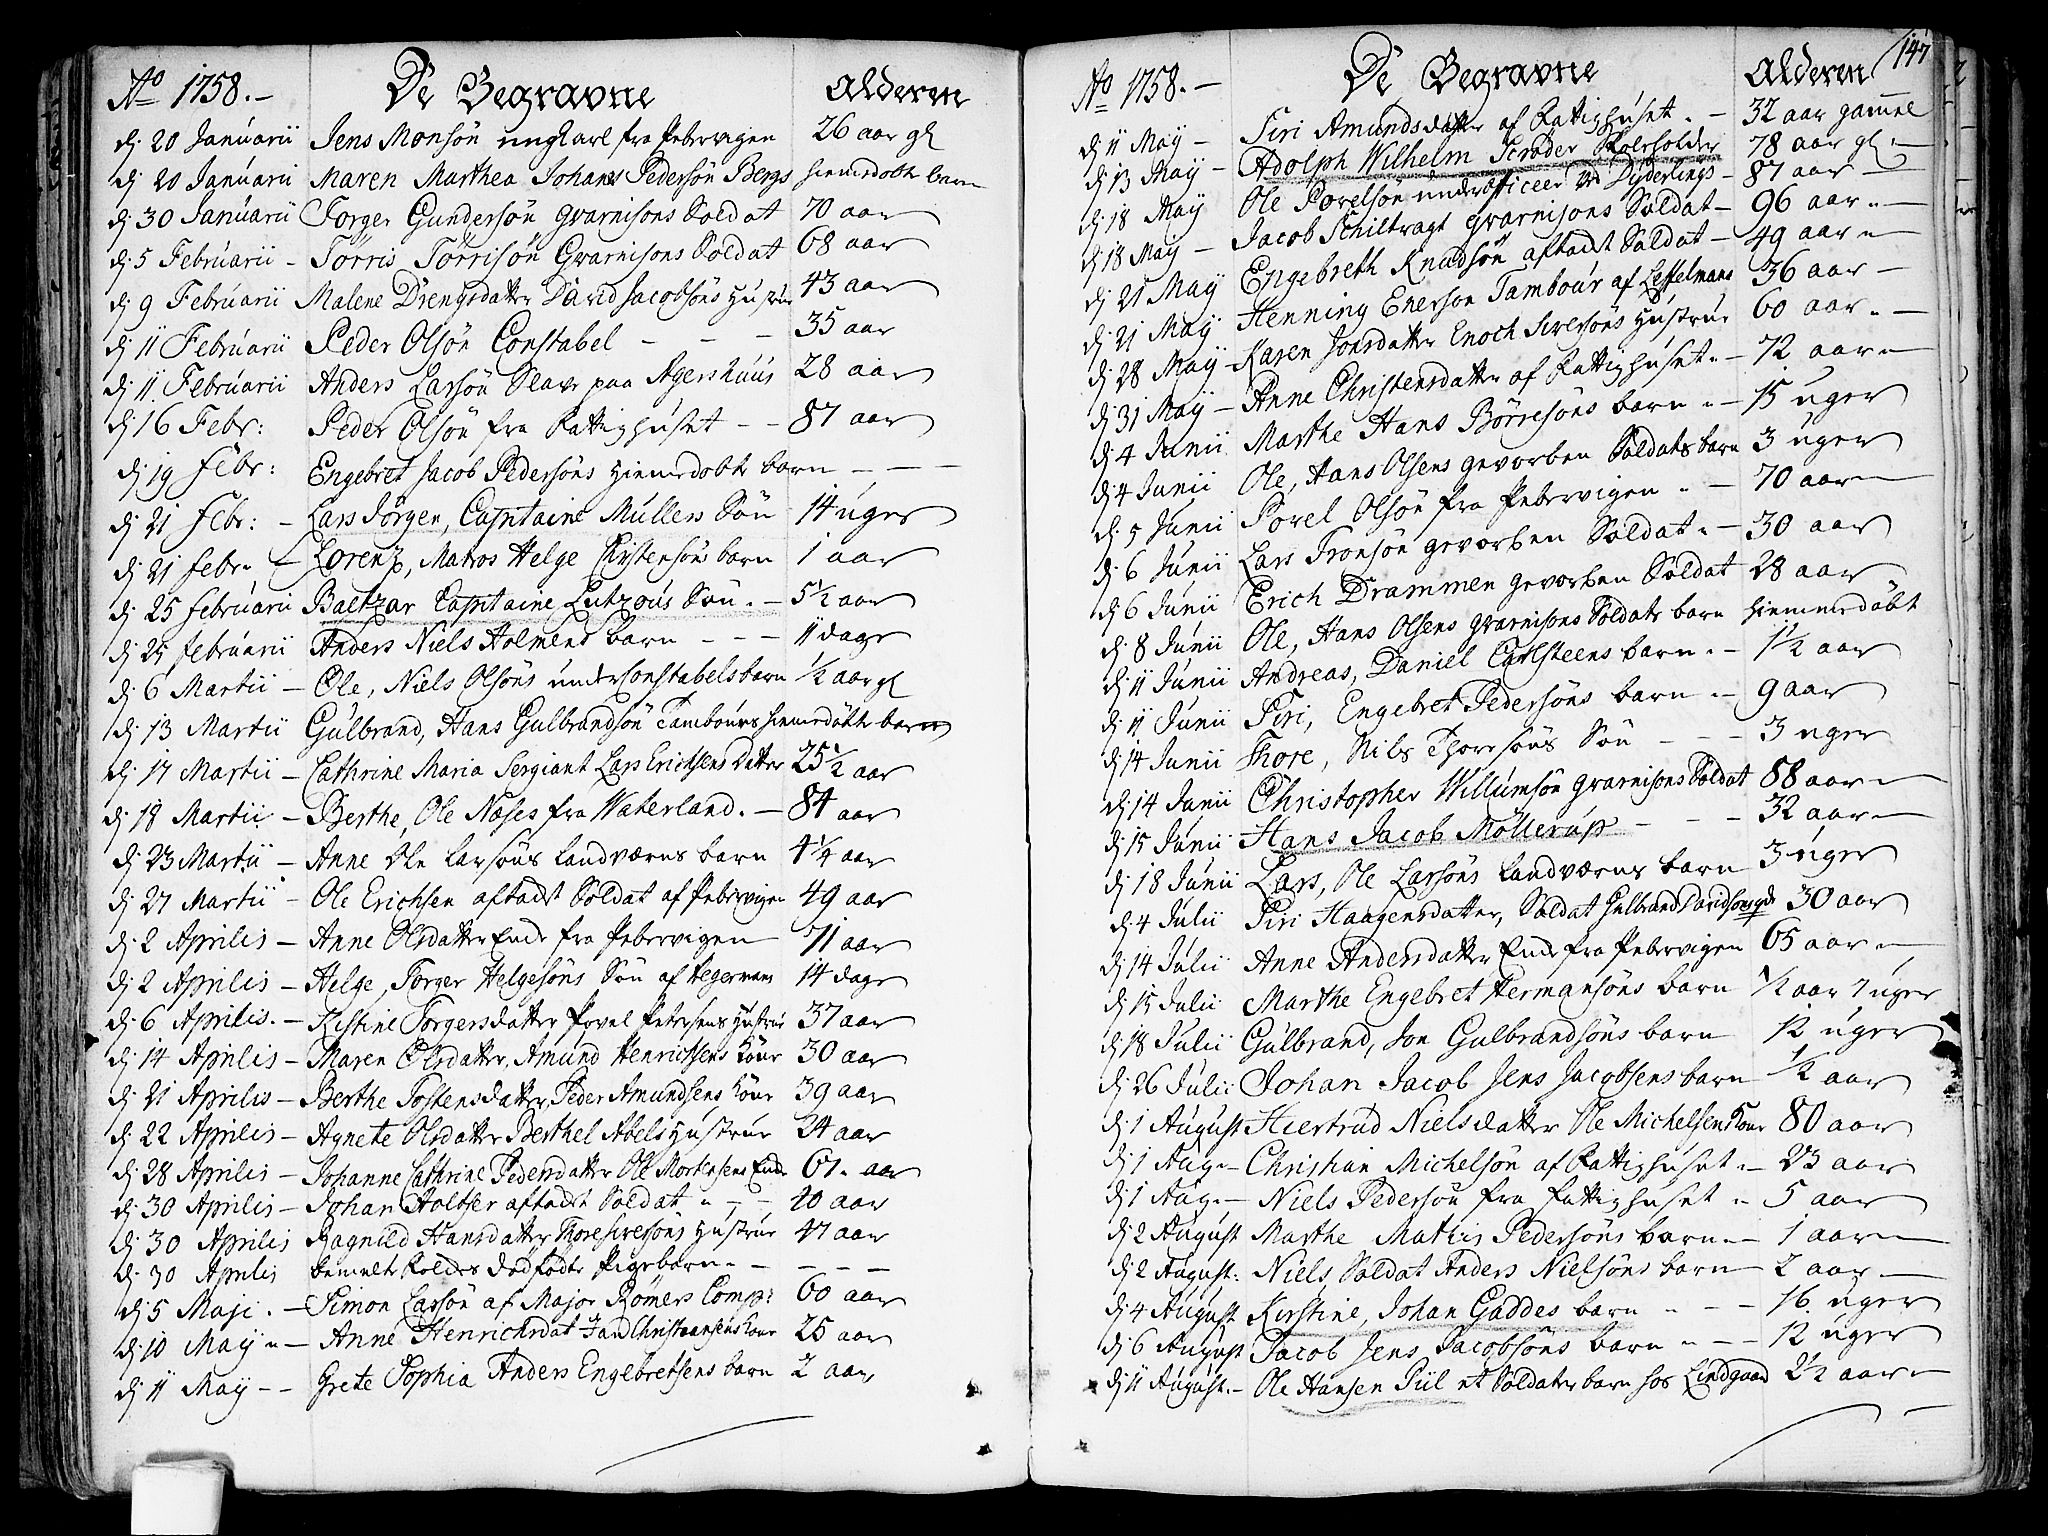 Ao 1758.— De Begravne Alderen
dj 20 Januarii Jens Monsön ungkarl fra Pebervigen 26 aar gl
dj 20 Januarii Maren Marthea Johans Pedersön Bergs hiemedöbte barn
dj 30 Januarii Torger Gundersön Gvarnisons Soldat 70 aar
dj 5 Februarii – Törris Törrisön Gvarnisons Soldat 68 aar
dj 9 Februarii Malene Drengsdatter David Jacobsöns Hustrue 43 aar
dj 11 Februarii Peder Olsön Constabel – – – 35 aar
dj 11 Februarii Anders Larsön Slave paa Agershuus 28 aar
dj 16 Febr: Peder Olsön fra Fattighuset – – 87 aar
dj 19 Febr: Engebret Jacob Pedersöns Hiemedöbte barn – – –
dj 21 Febr: – Lars Jörgen, Capitaine Mullers Sön 14 uger
dj 21 Febr. – Lorenz, Matros Helge Christensöns barn 1 aar
dj 25 Februarii Baltzar Capitaine Lutzous Sön. – 5½ aar
dj 25 Februarii Anders Niels Holmens barn – – – 11 dage
dj 6 Martii – Ole, Niels Olsöns underConstabels barn ½ aar gl
dj 13 Martii Gulbrand, Hans Gulbrandsön Tambours hiemedöbte barn
dj 17 Martii – Cathrine Maria Sergiant Lars Erichsens Datter 25½ aar
dj 18 Martii – Berthe, Ole Noses fra Waterland. – 84 aar
dj 23 Martii – Anne Ole Larsöns Landværns barn 4¼ aar
dj 27 Martii – Ole Erichsen aftadt Soldat af Pebervigen 49 aar
dj 2 Aprilis – Anne Olsdatter Enke fra Pebervigen 71 aar
dj 2 Aprilis – Helge, Torger Helgesöns Sön af Hegermans 14 dage
dj 6 Aprilis. – Kistine Torgersdatter Povel Petersens Hustrue 37 aar
dj 14 Aprilis – Maren Olsdatter, Amund Henrichsens Kone 30 aar
dj 21 Aprilis – Berthe Tostensdatter, Peder Amundsens Kone 39 aar
dj 22 Aprilis – Agnete Olsdatter Berthel Abels Hustrue 24 aar
dj 28 Aprilis – Johanne Cathrine Pedersdatter Ole Mortensens Enke 61. aar
dj 30 Aprilis – Johan Holtser aftadt Soldat – – 40 aar
dj 30 Aprilis Ragnild Hansdatter Thore Siversöns Hustrue 47 aar
dj 30 Aprilis dödfödte Pigebarn – – – –
dj 5 Maji. – Simon Larsön af Major Römers Comp: 60 aar
dj 10 Maij – Anne Henrichsdat Jan Christiansens Kone 25 aar
dj 11 Maij – – Grete Sophia Anders Engebretsens barn 2 aar
147
Ao 1758.– De Begravne Alderen
dj 11 Maij – Siri Amundsdatter af Fattighuset. – 32 aar gammel
dj 13 Maij – Adolph Wilhelm Scröder 78 aar gl –
dj 18 Maij Ole Povelsön underofficeer ved Dyderlings – 87 aar –
dj 18 Maij – Jacob Schiltvagt Gvarnisons Soldat – 96 aar. –
dj 21 Maij Engebreth Knudsön aftadt Soldat – 49 aar –
dj 21 Maij Henning Enerson Tambour af Leffelmans 36 aar –
dj 28 Maij – Karen Jonsdatter Enoch Siversöns Hustrue 60 aar. –
dj 31 Maij – Anne Christensdatter af Fattighuset. – 72 aar –
dj 4 Junii Marthe Hans Börresöns barn – 15 uger
dj 4 Junii Ole, Hans Olsens gevorben Soldats barn 3 uger
dj 5 Junii Povel Olsön fra Pebervigen – 70 aar
dj 6 Junii Lars Tronsön gevorben Soldat – 30 aar
dj 6 Junii Erich Drammen gevorben Soldat 28 aar
dj 8 Junii Ole, Hans Olsens Gvarnisons Soldats barn Hiemmedöbt
dj 11 Junii Andreas, Daniel Carlsteens barn. – 1½ aar
dj 11 Junii Siri, Engebret Pedersöns barn – 9 aar
dj 14 Junii Thore, Nils Thoresöns Sön – – – 3 uger
dj 14 Junii Christopher Willumsön Gvarnisons Soldat 88 aar –
dj 15 Junii – Hans Jacob Möllerup – – – 32 aar –
dj 18 Junii Lars, Ole Larsöns Landværns barn 3 uger
dj 4 Julii Siri Haagensdatter, Soldat Gulbrand Davidsöns 30 aar
dj 14 Julii Anne Andersdatter Enke fra Pebervigen 65 aar –
dj 15 Julii Marthe Engebret Hermansöns barn ½ aar 7 uger
dj 18 Julii Gulbrand, Jon Gulbrandsöns barn 12 uger
dj 26 Julii Johan Jacob Jens Jacobsens barn ½ aar
dj 1 August Hiertrud Nielsdatter Ole Michelsens Kone 80 aar
dj 1 Aug. – Christian Michelsön af Fattighuset – 23 aar
dj 1 Aug. – Niels Pedersön fra Fattighuset – 5 aar
dj 2 August Marthe Mathis Pedersöns barn – 1 aar
dj 2 August: Niels Soldat Anders Nielsöns barn 2 aar –
dj 4 August Kirstine, Johan Gaddes barn – – 16 uger
dj 6 August Jacob Jens Jacobsöns barn – – 12 uger
dj 11 August. – Ole Hansen Piil et Soldater barn hos Lindgaard 2½ aar –